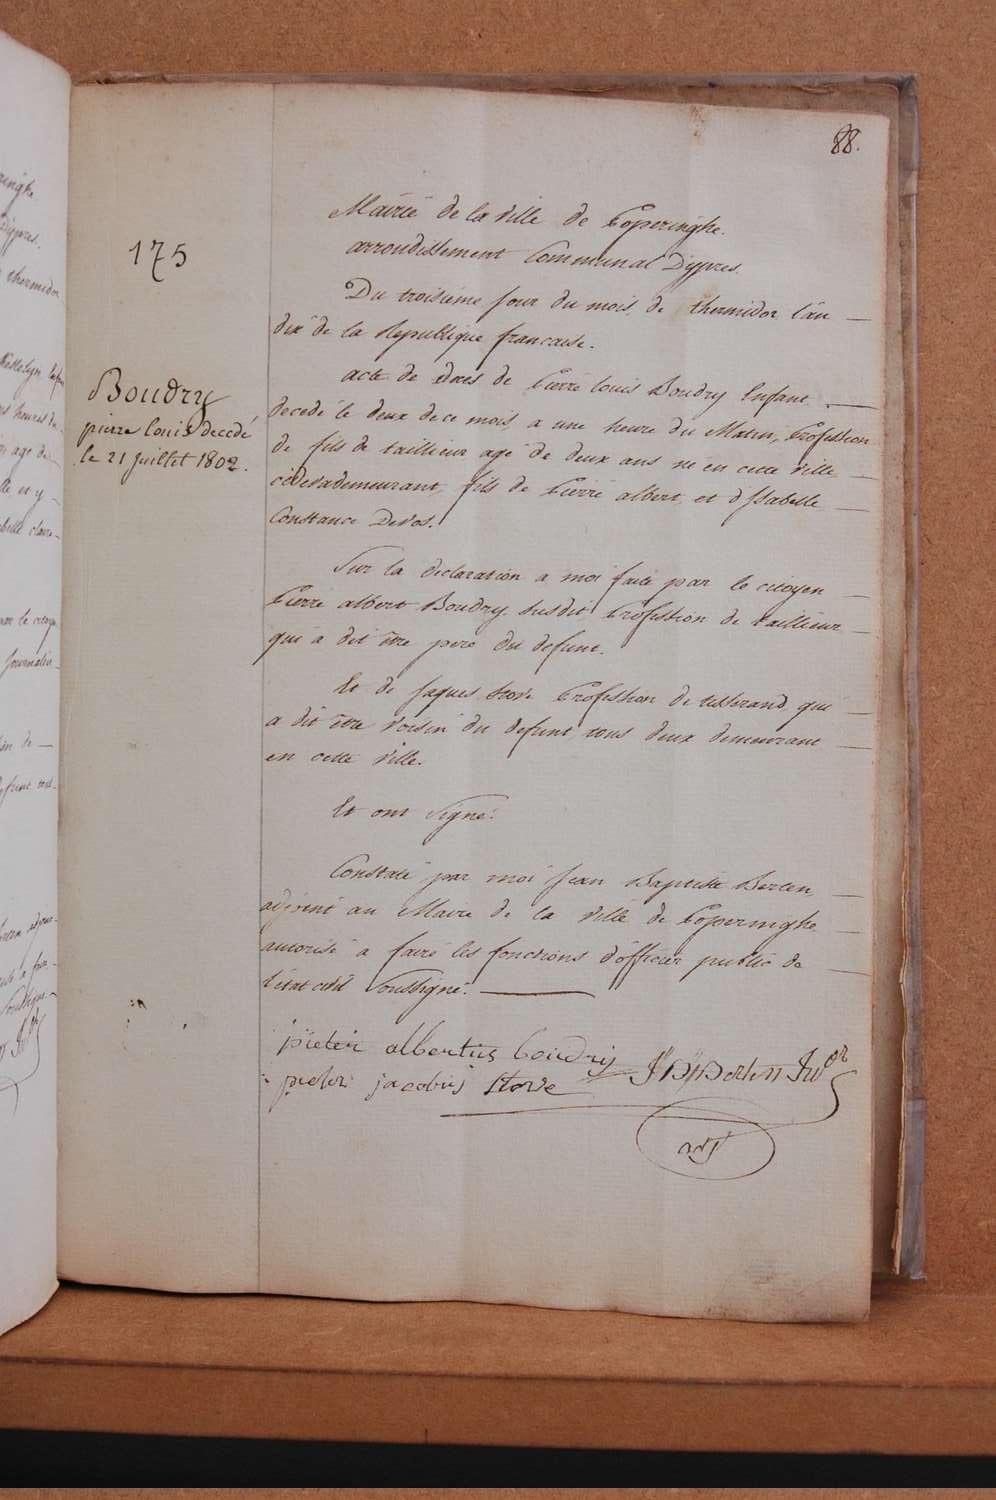 88.
175
Boudry
pierre louis decedé
le 21 juillet 1802.
Mairie de la ville de Poperinghe.
arrondissement Communal D'ypres.
Du troisieme jour du mois de thermidor l'an
dix de la Republique francaise.
acte de deces de Pierre louis Boudry Enfant
decedé le deux de ce mois, a une heure du Matin, Profession
de fils de taillieur agé de deux ans né en cette ville,
demeurant, fils de Pierre albert, et d'Isabelle
Constance Devos.
Sur la declaration a moi faite par le citoyen
Pierre albert Boudry susdit, Profession de taillieur
qui a dit être pere du defunt.
Et de Jaques Stove Profession de tisserand qui
a dit être voisin du defunt, tous deux demeurant
en cette ville.
Et ont Signé.
Constaté par moi Jean Baptiste Berten,
adjoint au Maire de la ville de Poperinghe
autorisé a faire les fonctions d'officier public de
l'état civil Soussigné.
pieter albertus boudrij
pieter jacobus Stove
J B Berten
ringhe
D'ypres.
thermidor